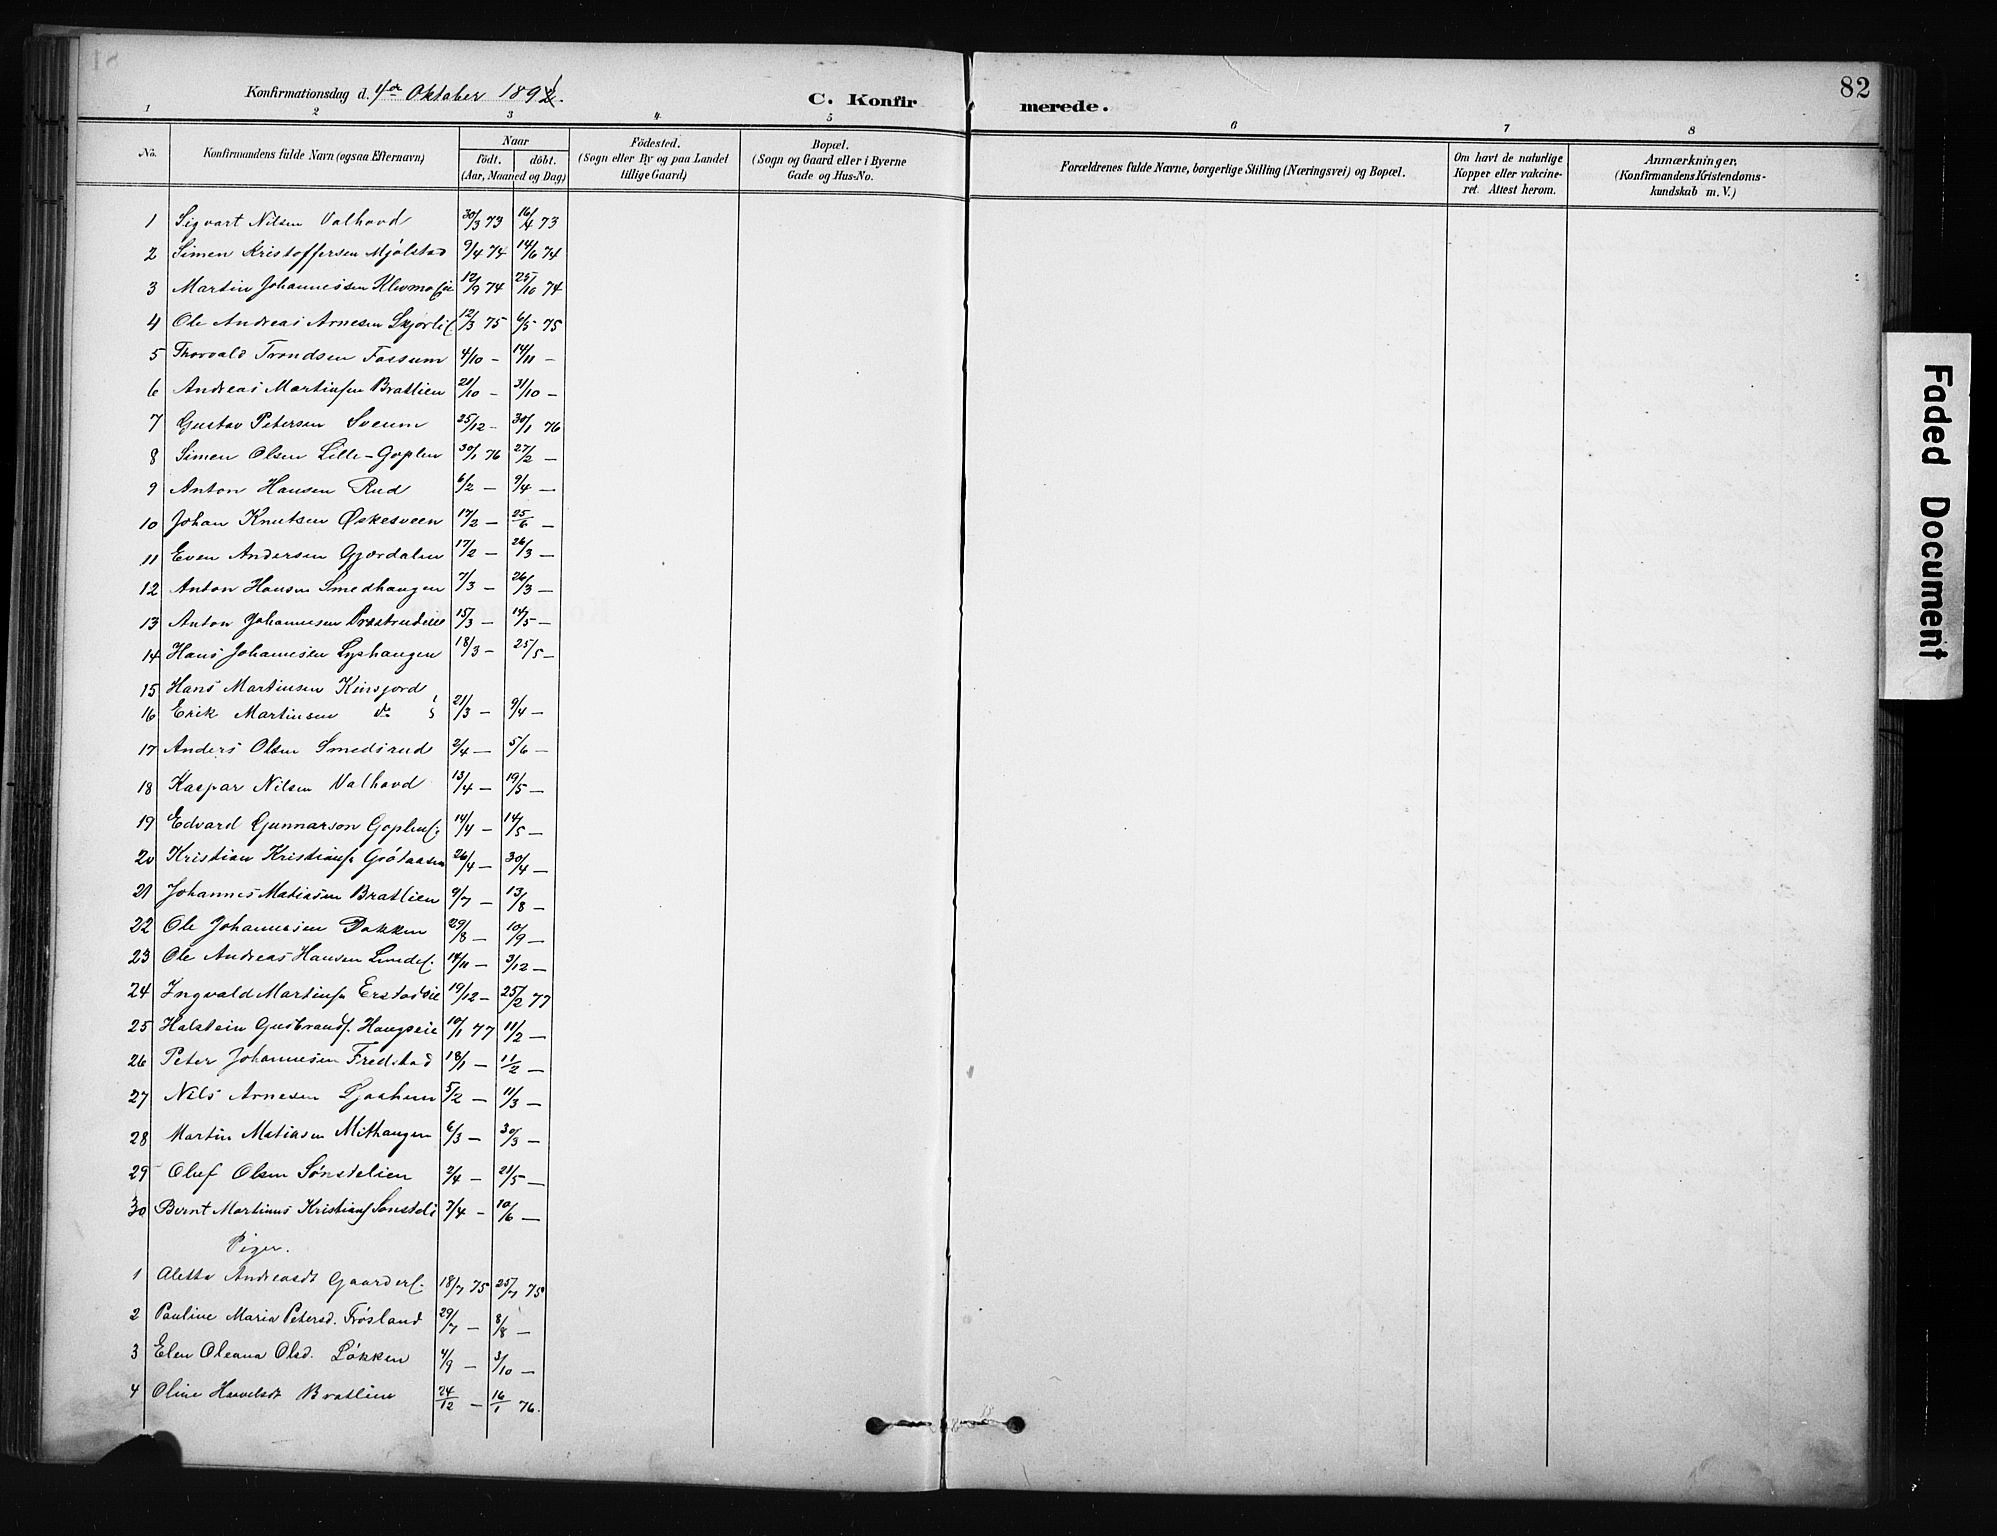 82
Konfirmationsdag d. 4de Oktober 1891.
C. Konfirmerede.
1 2 3 4 5 6 7 8
No.
Konfirmandens fulde Navn (ogsaa Efternavn)
Naar
födt. döbt.
(Aar, Maaned og Dag)
Födested.
(Sogn eller By og paa Landet
tillige Gaard)
Bopæl.
(Sogn og Gaard eller i Byerne
Gade og Hus-No.
Forældrenes fulde Navne, borgerlige Stilling (Næringsvei) og Bopæl.
Om havt de naturlige
Kopper eller vakcine-
ret. Attest herom.
Anmærkninger.
(Konfirmandens Kristendoms-
kundskab m. V.)
1 Sigvart Nilsen Valhovd 30/3 73 16/4 73
2 Simen Kristoffersen Mjølstad 9/4 74 14/6 74
3 Martin Johannessen Klevmoeie 12/9 74 25/10 74
4 Ole Andreas Arnesen Skjørlie 12/3 75 6/5 75
5 Thorvald Trondsen Fossum 4/10 - 14/11 -
6 Andreas Martinsen Bratlien 21/10 - 31/10 -
7 Gustav Petersen Sveum 25/12 - 30/1 76
8 Simen Olsen Lille-Goplen 30/1 76 27/2 -
9 Anton Hansen Rud 6/2 - 9/4 -
10 Johan Knutsen Øskesveen 17/2 - 25/6 -
11 Even Andersen Gjærdalen 17/2 - 26/3 -
12 Anton Hansen Smedhaugen 7/3 - 26/3 -
13 Anton Johannesen Præstrudeie 15/3 - 14/5 -
14 Hans Johannesen Lyshaugen 18/3 - 25/5 -
15 Hans Martinsen Kinsjord
16 Erik Martinsen do 21/3 - 9/4 -
17 Anders Olsen Smedsrud 2/4 - 5/6 -
18 Kaspar Nilsen Valhovd 13/4 - 19/5 -
19 Edvard Gunnarson Goplene. 14/4 - 14/5 -
20 Kristian Kristians Grötaasen 26/4 - 30/4 -
21 Johannes Matiasen Bratlien 9/7 - 13/8 -
22 Ole Johannesen Dokken 29/8 - 10/9 -
23 Ole Andreas Hansen Lunde. 14/11 - 3/12 -
24 Ingvald Martins Erstadeie 19/12 - 25/2 77
25 Halstein Gudbrands. Haugseie 10/1 77 11/2 -
26 Peter Johannesen Fredstad 18/1 - 11/2 -
27 Nils Arnesen Ljøshun 5/2 - 11/3 -
28 Martin Matiasen Mithaugen 6/3 - 30/3 -
29 Oluf Olsen Sønstelien 2/4 - 21/5 -
30 Bernt Martinus Kristians Sønsteli 7/4 - 10/6 -
Piger.
1 Aletta Andreasdt Gaarder. 18/7 75 25/7 75
2 Pauline Maria Petersd. Frøsland 29/7 - 8/8 -
3 Elen Oleana Olsd. Løkken 4/9 - 3/10 -
4 Oline Haveldt Bratlien 24/12 - 16/1 76.
Faded Document